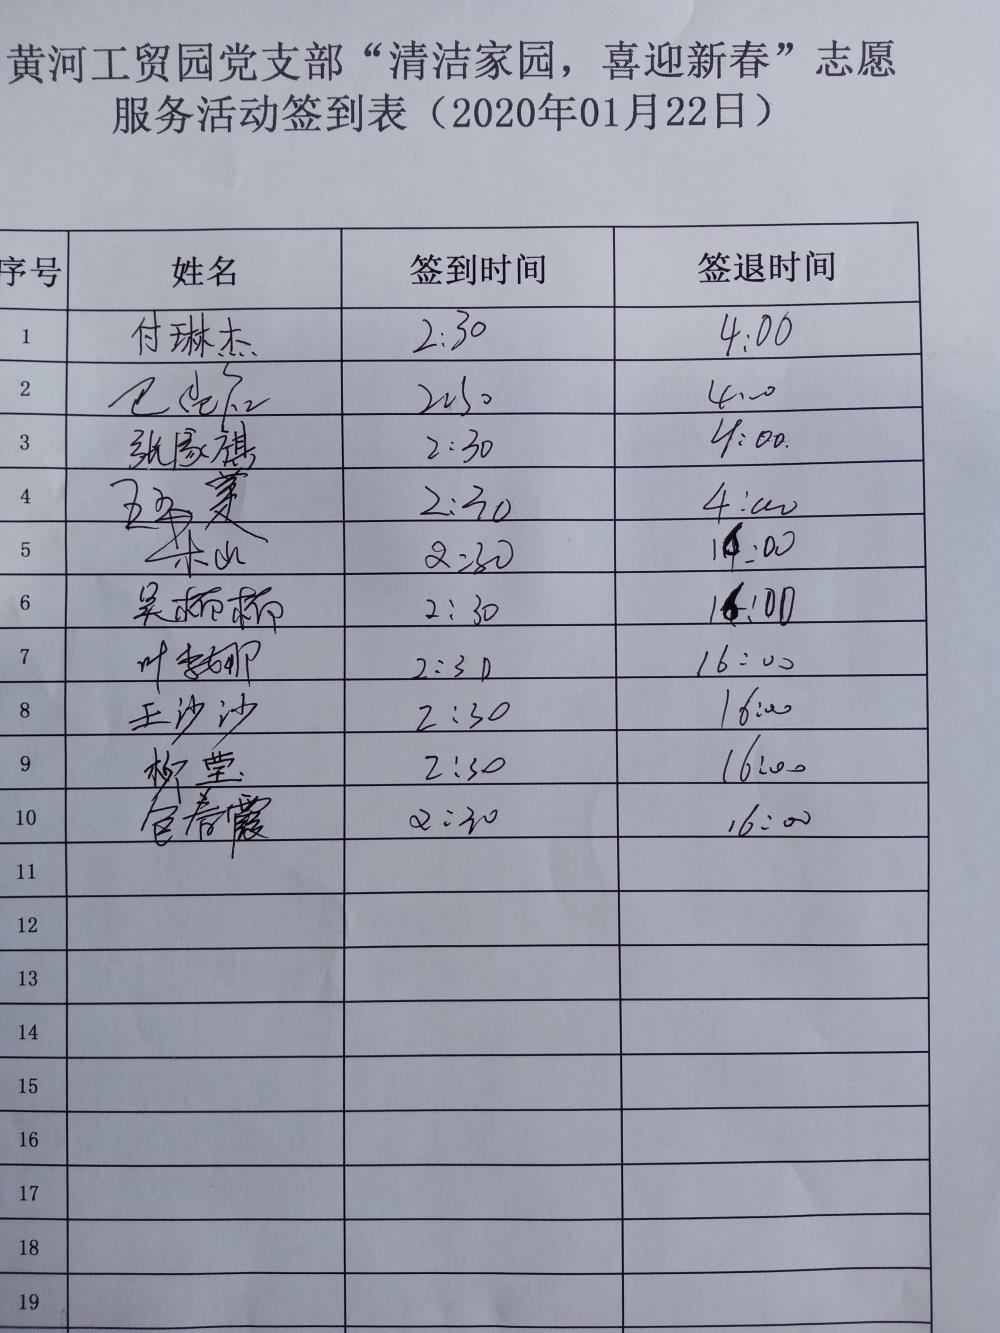 黄河工贸园党支部“清洁家园，喜迎新春”志愿
服务活动签到表（2020年01月22日）
序号 姓名 签到时间 签退时间
1 付琳杰 2:30 4:00
2 2:30 4:00
3 张家祺 2:30 4:00.
4 2:30 4:00
5 朱山 2:30 16:00
6 吴柳柳 2:30 16:00
7 叶李娜 2:30 16:00
8 王沙沙 2:30 16:00
9 柳莹 2:30 16:00
10 包春霞 2:30 16:00
11
12
13
14
15
16
17
18
19